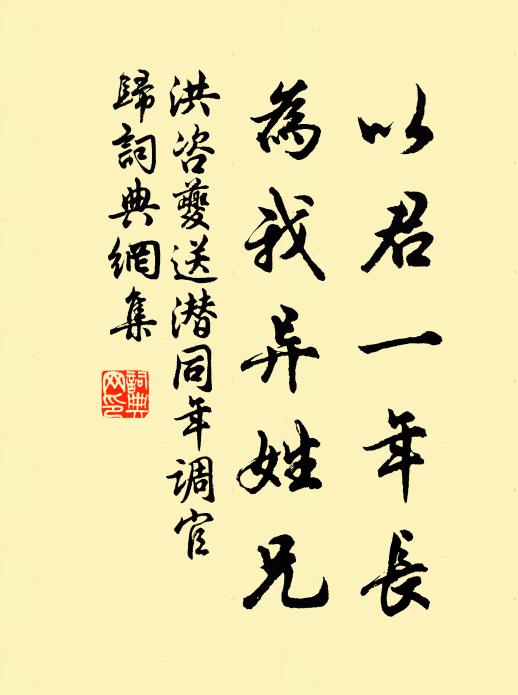 以君一年長
為我异姓兄
洪咨夔送潜同年调官
歸詞典網集
詞典网印